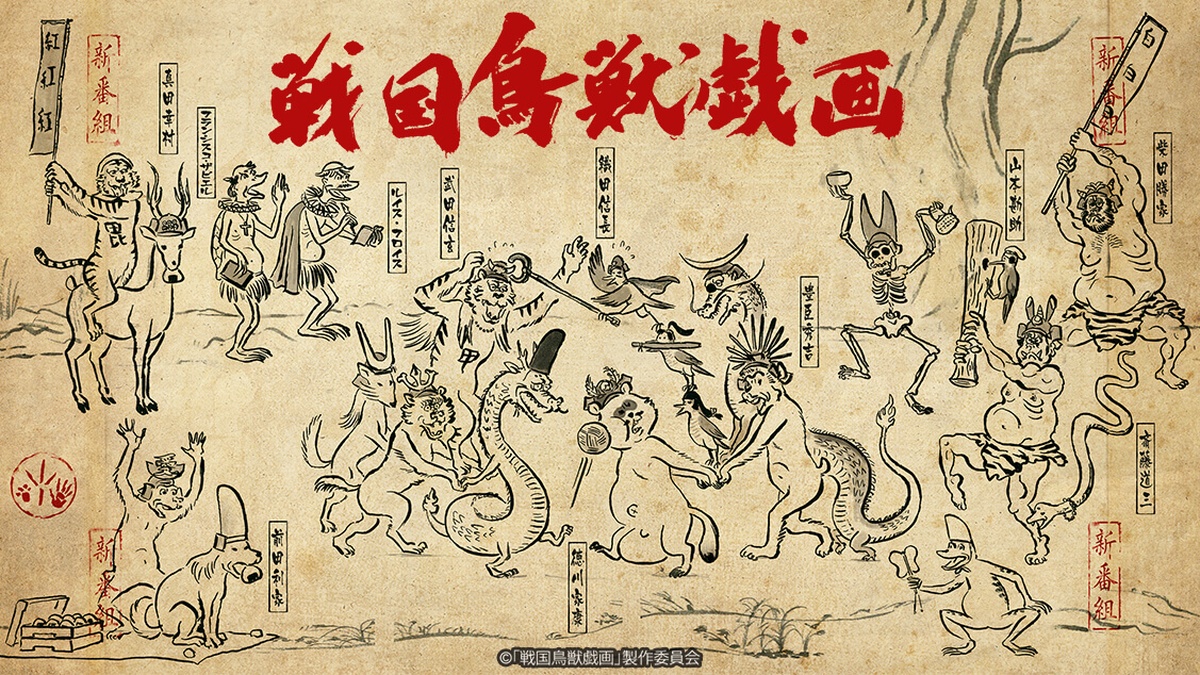 戦国鳥獣戯画
紅紅紅
新番組
真田幸村
フランシスコ・ザビエル
毘
ルイス・フロイス
武田信玄
織田信長
甲
豊臣秀吉
山本勘助
柴田勝家
白白
新番組
斎藤道三
新番組
前田利家
徳川家康
新番組
©「戦国鳥獣戯画」製作委員会